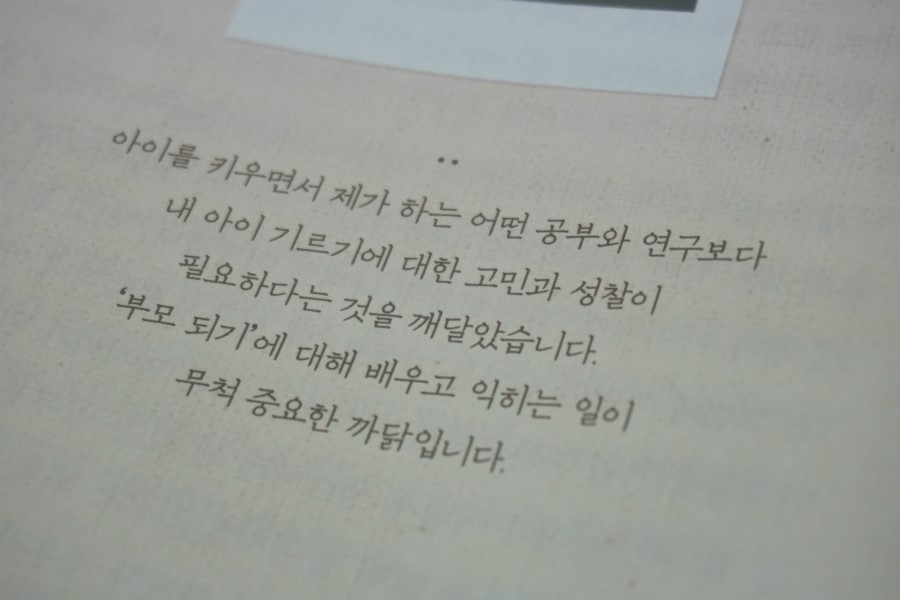 아이를 키우면서 제가 하는 어떤 공부와 연구보다
내 아이 기르기에 대한 고민과 성찰이
필요하다는 것을 깨달았습니다.
‘부모 되기’에 대해 배우고 익히는 일이
무척 중요한 까닭입니다.